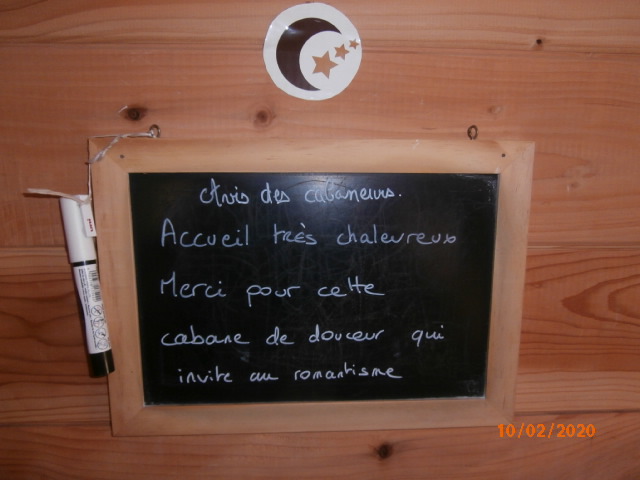 Avis des cabaneurs.
Accueil très chaleureux
Merci pour cette
cabane de douceur qui
invite au romantisme
10/02/2020